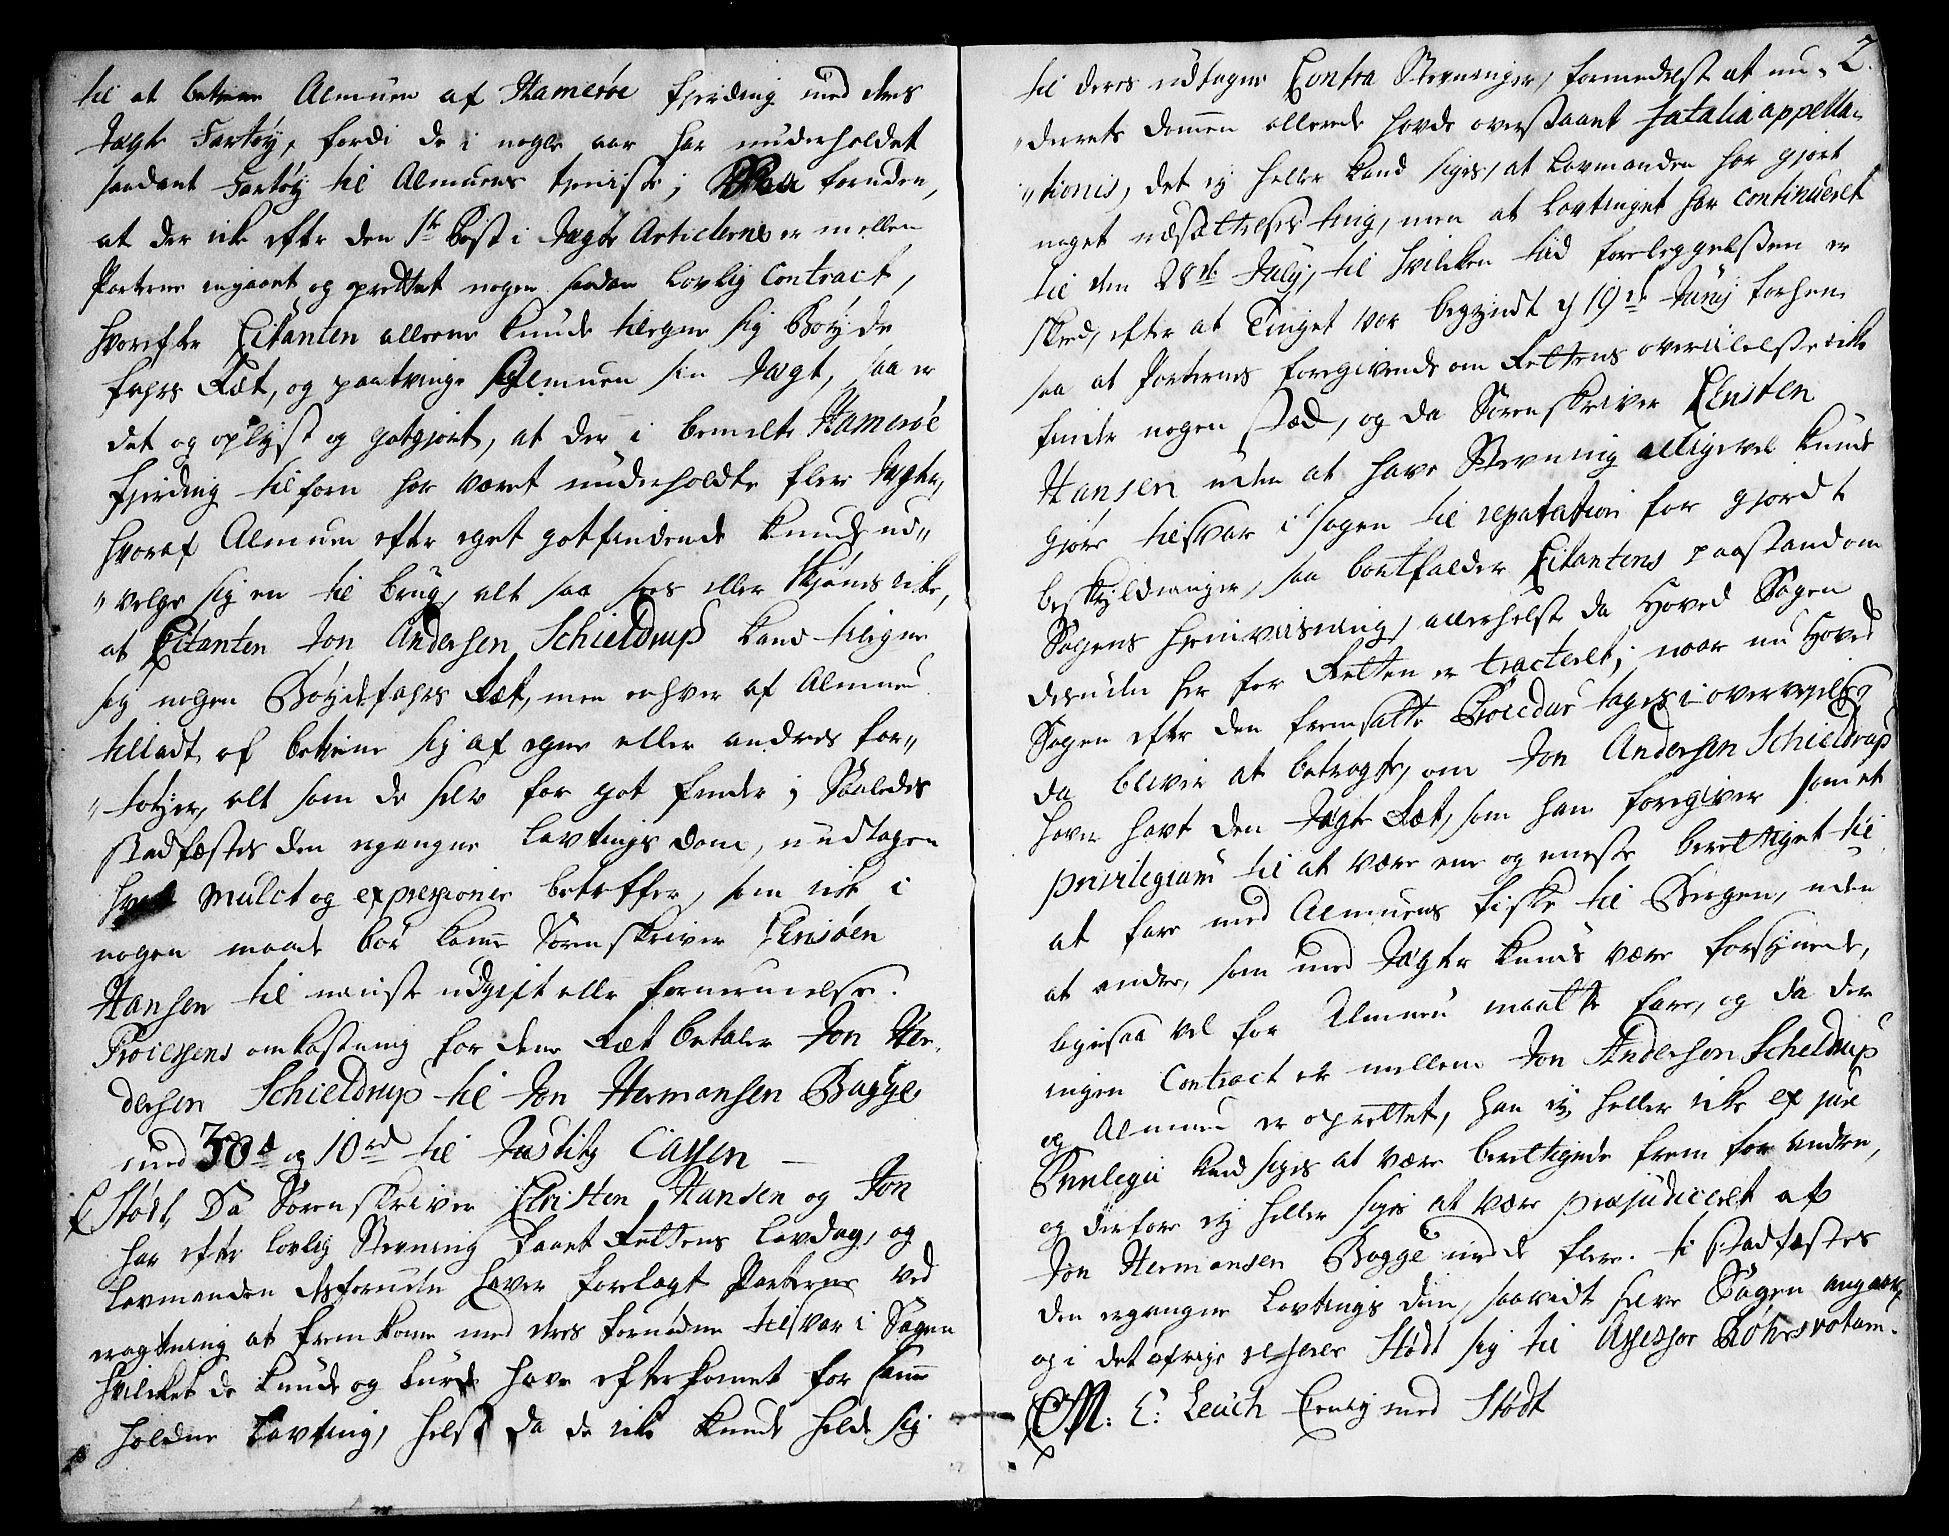 til at betiene Almuen af Hamerøe fierding med dens
Jagte Fartøy, fordi de i nogle aar har underholdet
saadant Fartøy til Almuens tieniste; foruden,
at der icke efter den 1ste Post i Jagte Articlerne er mellem
Parterne ingaaet og oprettet nogen saadan Lovlig Contract,
hvorefter Citanten alleene kunde tilegne sig Bøyde
fahrs Ræt, og paatvinge Almuen sin Jagt, saa er
det og oplyst og gotgiort, at der i bemelte Hamerøe
fierding tilforn har været underholdte flere Jagter,
hvoraf Almuen efter eget gotfindende kunde ud„
„velge sig en til brug, alt saa sees eller skiønnes icke,
at Citanten Jon Andersen Schieldrup kand tilegne
sig nogen Bøydefahrs Ræt, men enhver af Almuen
tilladt at betiene sig af egne eller andres far„
„tøyer, alt som de selv for got finder; Saaledes
stadfæstes den ergangne Lavtings dom, undtagen
hvad Mulct og expressioner betreffer, som icke i
nogen maade bør komme Sorenskriver Christen
Hansen til mindste udgift eller fornermelse.
Processens omkostning for denne Ræt betaler Jon An„
dersen Schieldrup til Jon Hermansen Bagge
med 30 rd og 10 rd til Justitz Cassen —
Stødt, Da Sorenskriver Christen Hansen og Jon
har efter lovlig Stevning faaet Rettens Lavdag, og
Lavmanden desforuden haver forelagt Parterne ved
ragtning at fremkomme med deres fornødne tilsvar i Sagen
hvilcket de kunde og burde have efterkommet for samme
holdne Lavting, helst da de icke kunde holde sig
2.
til deres udtagne Contra Stevninger, formedelst at un„
„derrets dommen allerede havde overstaaet fatalia appella„
„tionis, det ey heller kand siges, at Lavmanden har giort
noget udsættelses ting, men at Lavtinget har continueret
til den 28de July, til hvilcken tid foreleggelsen er
skeed, efter at Tinget var begyndt d 19de Junij forhen
saa at Parternes foregivende om Rettens overiilelse icke
finder nogen sted, og da Sorenskriver Christen
Hansen uden at have Stevning alligevel kunde
giøre tilsvar i Sagen til reputation for giordte
beskyldninger, saa bortfalder Citantens paastand om
Sagens hiemviisning, allerhelst da Hoved Sagen
desuden her for Retten er tracteret; naar nu Hoved
Sagen efter den fremsatte Procedur tages i overveyelse,
da bliver at betragte, om Jon Andersen Schieldrup
haver havt den Jagte Ræt, som han foregiver som et
privilegium til at være eene og eeneste berettiget til
at fare med Almuens fiske til Bergen, uden
at andre, som med Jagter kunde være forsynede,
ligesaa vel for Almuen maatte fare, og da der
ingen Contract er mellem Jon Andersen Scheldrup
og Almuen er oprettet, han ey heller icke ex jure
Privilegii kand siges at være berettigede frem for andre,
og derfore ey heller siges at være præjudiceret af
Jon Hermansen Bagge med fleere. ti stadfæstes
den ergangne Lavtings dom, saavidt selve Sagen angaar,
og i det øfrige refererer Stødt sig til Assessor Røhrs votum.
M: C: Leuch Eenig med Stødt